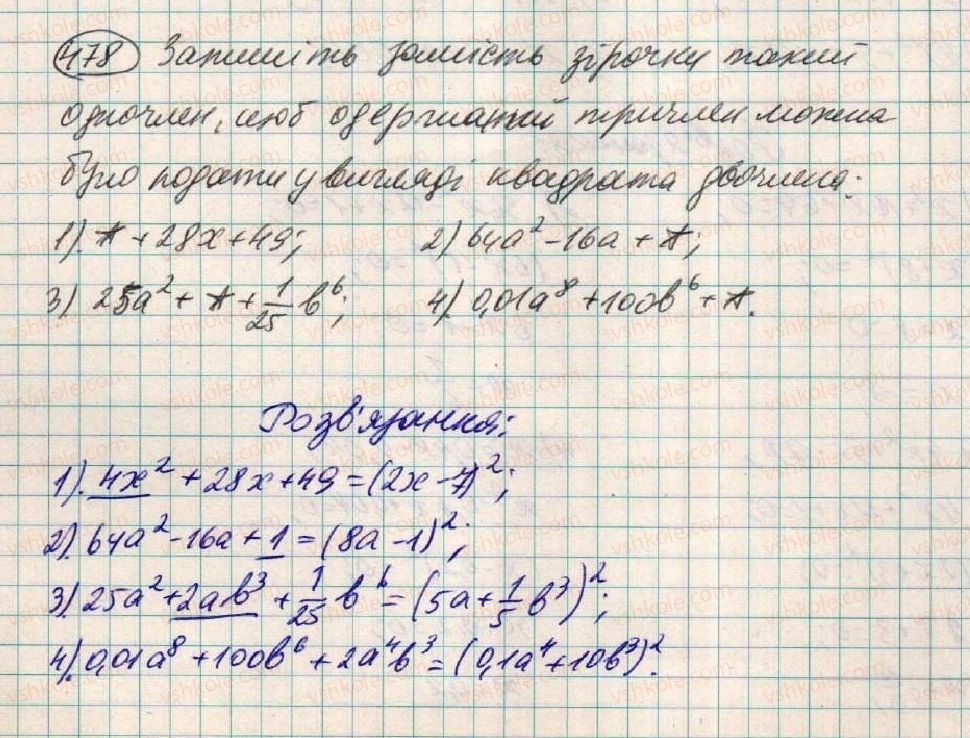 478 Запишіть замість зірочки такий
одночлен, щоб одержаний тричлен можна
було подати у вигляді квадрата двочлена:
1). * + 28x + 49; 2) 64a² - 16a + *;
3) 25a² + * + 1/25 b⁶; 4). 0,01a⁸ + 100b⁶ + *.
Розв'язання:
1). 4x² + 28x + 49 = (2x - 7)²;
2). 64a² - 16a + 1 = (8a - 1)²;
3) 25a² + 2ab³ + 1/25 b⁶ = (5a + 1/5 b³)²;
4). 0,01a⁸ + 100b⁶ + 2a⁴b³ = (0,1a⁴ + 10b³)².